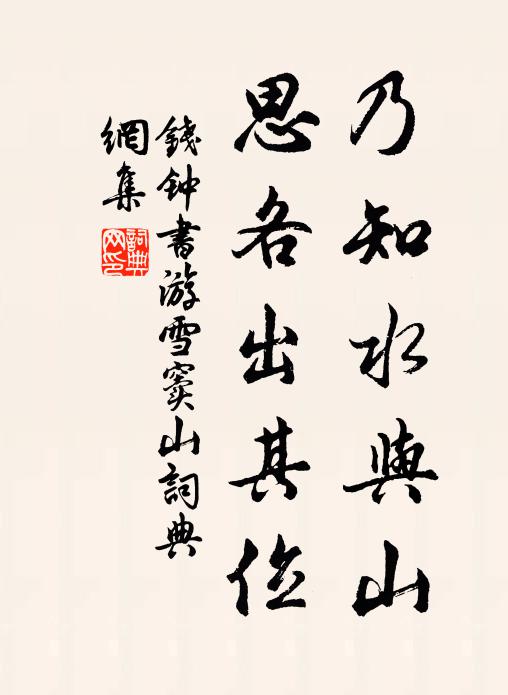 乃知水與山
思各出其位
錢钟書游雪窦山詞典
網集
詞典
网印